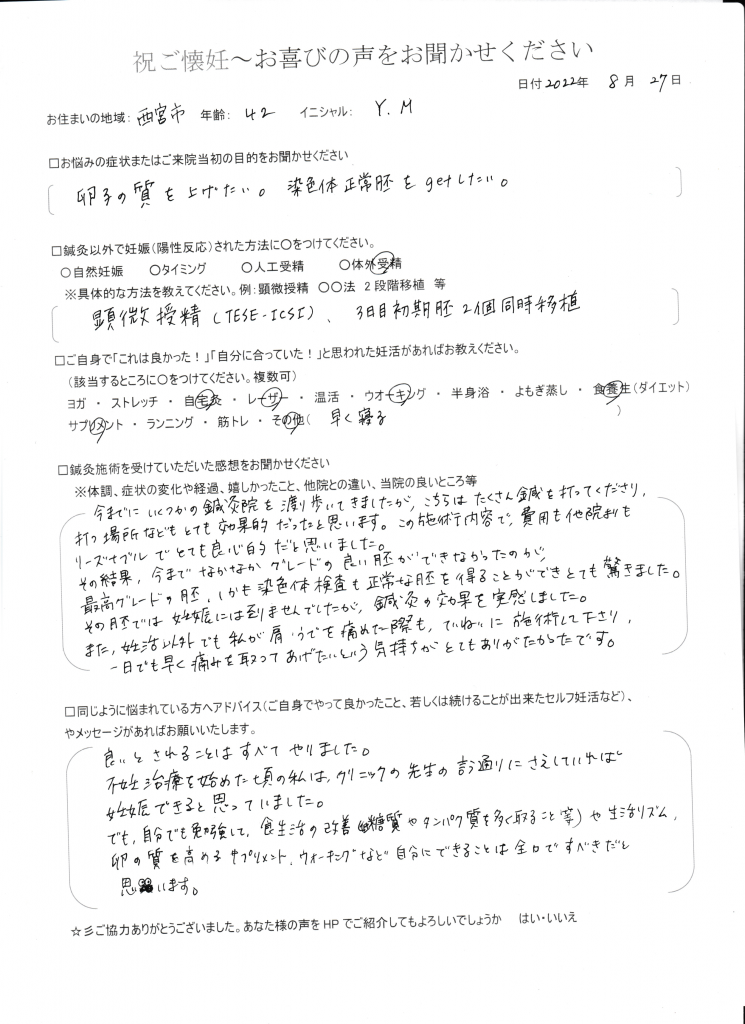 祝ご懐妊～お喜びの声をお聞かせください
日付 2022年 8月 27日
お住まいの地域: 西宮市 年齢: 42 イニシャル: Y.M
□お悩みの症状またはご来院当初の目的をお聞かせください
卵子の質を上げたい。 染色体正常胚をgetしたい。
□鍼灸以外で妊娠(陽性反応)された方法に○をつけてください。
○自然妊娠 ○タイミング ○人工受精 ○体外受精
※具体的な方法を教えてください。例:顕微授精 ○○法 2段階移植 等
顕微授精(TESE-ICSI)、3日目初期胚2個同時移植
□ご自身で「これは良かった!」「自分に合っていた!」と思われた妊活があればお教えください。
(該当するところに○をつけてください。複数可)
ヨガ ・ ストレッチ ・ 自宅灸 ・ レーザー ・ 温活 ・ ウオーキング ・ 半身浴 ・ よもぎ蒸し ・ 食養生(ダイエット)
サプリメント ・ ランニング ・ 筋トレ ・ その他( 早く寝る )
□鍼灸施術を受けていただいた感想をお聞かせください
※体調、症状の変化や経過、嬉しかったこと、他院との違い、当院の良いところ等
今までにいくつかの鍼灸院を渡り歩いてきましたが、こちらはたくさん鍼を打ってくださり、
打つ場所などもとても効果的だったと思います。この施術内容で、費用も他院よりも
リーズナブルでとても良心的だと思いました。
その結果、今までなかなかグレードの良い胚ができなかったのが、
最高グレードの胚、しかも染色体検査も正常な胚を得ることができとても驚きました。
その胚では妊娠には到りませんでしたが、鍼灸の効果を実感しました。
また、妊活以外でも私が肩・うでを痛めた際も、ていねいに施術して下さり、
一日でも早く痛みを取ってあげたいという気持ちがとてもありがたかったです。
□同じように悩まれている方へアドバイス(ご自身でやって良かったこと、若しくは続けることが出来たセルフ妊活など)、
やメッセージがあればお願いいたします。
良いとされることはすべてやりました。
不妊治療を始めた頃の私は、クリニックの先生の言う通りにさえしていれば
妊娠できると思っていました。
でも、自分でも勉強して、食生活の改善(糖質やタンパク質を多く取ること等)や生活リズム、
卵の質を高めるサプリメント、ウォーキングなど自分にできることは全力ですべきだと
思います。
☆彡ご協力ありがとうございました。あなた様の声をHPでご紹介してもよろしいでしょうか はい・いいえ